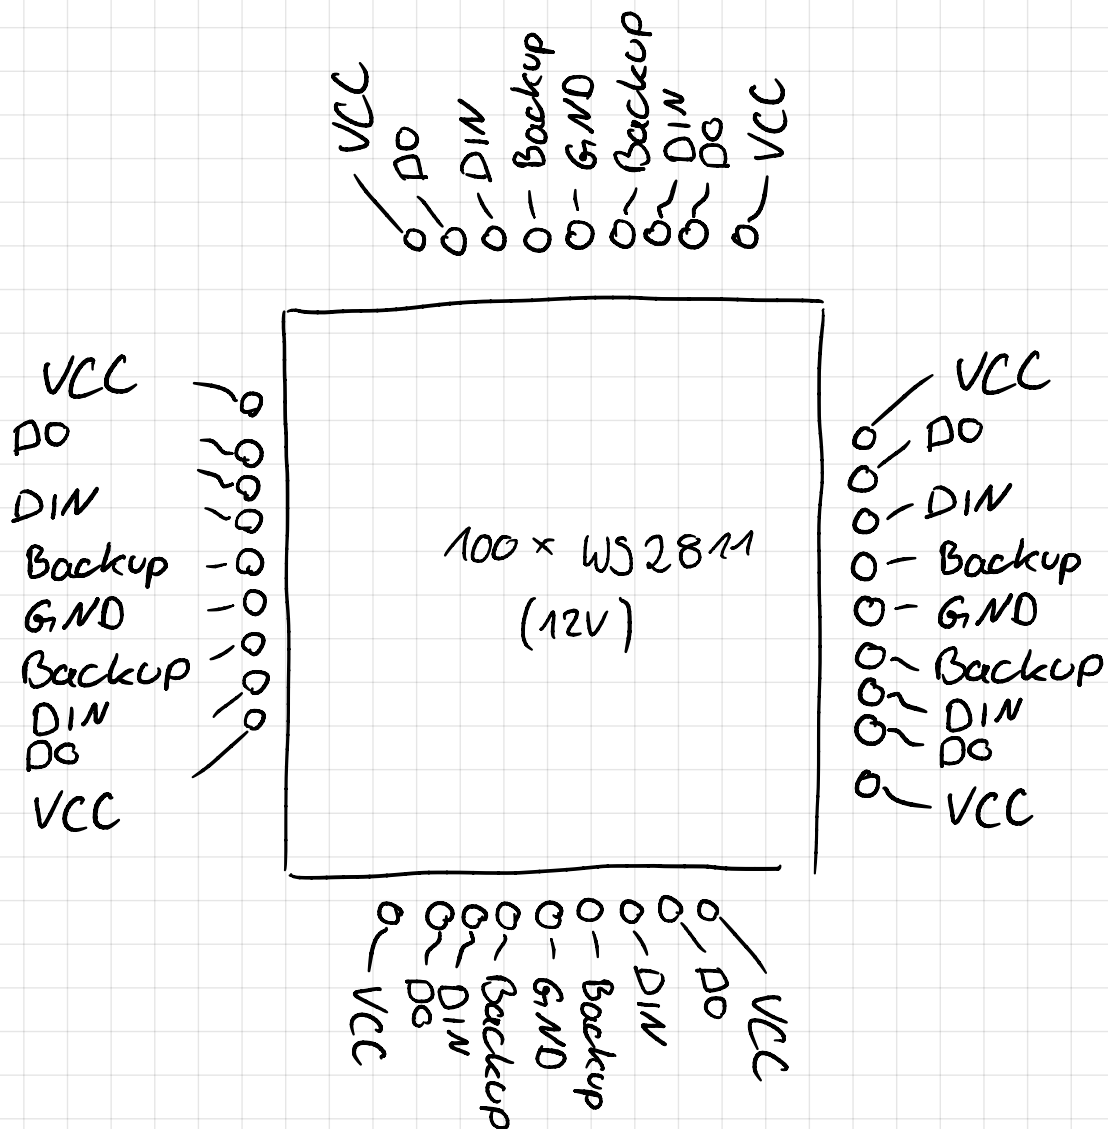 VCC
DO
DIN
Backup
GND
Backup
DIN
DO
VCC
VCC
DO
DIN
Backup
GND
Backup
DIN
DO
VCC
100 x WS2811
(12V)
VCC
DO
DIN
Backup
GND
Backup
DIN
DO
VCC
VCC
DO
DIN
Backup
GND
Backup
DIN
DO
VCC